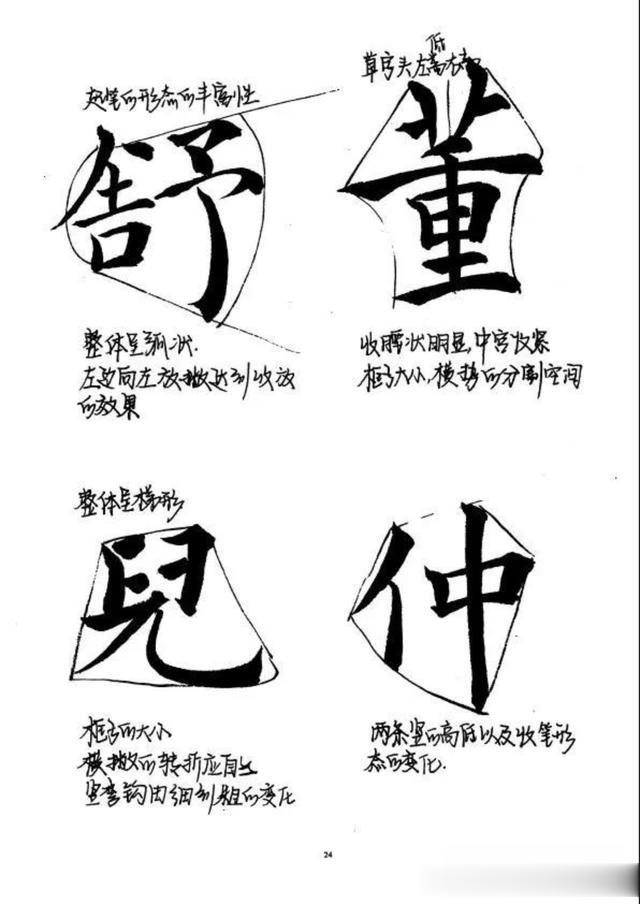 起笔的形态的丰富性
舒
整体呈弧状.
左边向左放,撇达到收放
的效果
低
草字头左高右
董
收腰状明显,中宫收紧
框的大小,横势的分割空间
整体呈梯形
兒
框的大小
横撇的转折应自然
竖弯钩由细到粗的变化
仲
两条竖的高低以及收笔形
态的变化.
24